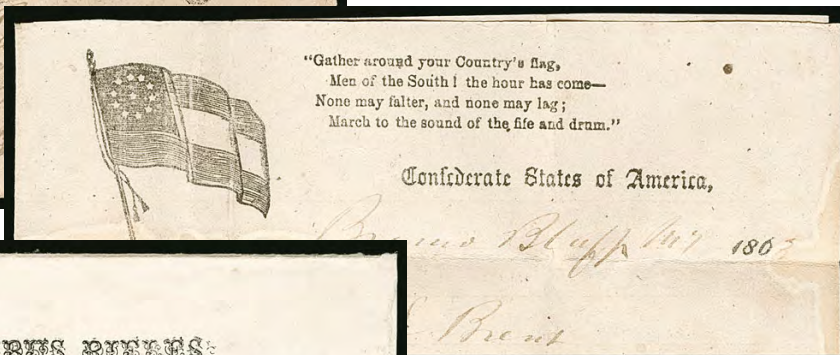 "Gather around your Country's flag,
Men of the South! the hour has come—
None may falter, and none may lag;
March to the sound of the fife and drum."
Confederate States of America,
Bremo Bluff 186
Brent
RIFLES: